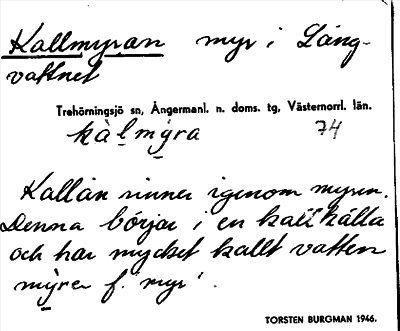 Kallmyran myr i Lång-
vattnet
Trehörningsjö sn, Ångermanl. n. doms. tg, Västernorrl. län.
kàl̲my̲ra 74
Kallån rinner igenom myren.
Denna börjar i en kall källa
och har mycket kallt vatten
my̲rer f. myr.
TORSTEN BURGMAN 1946.